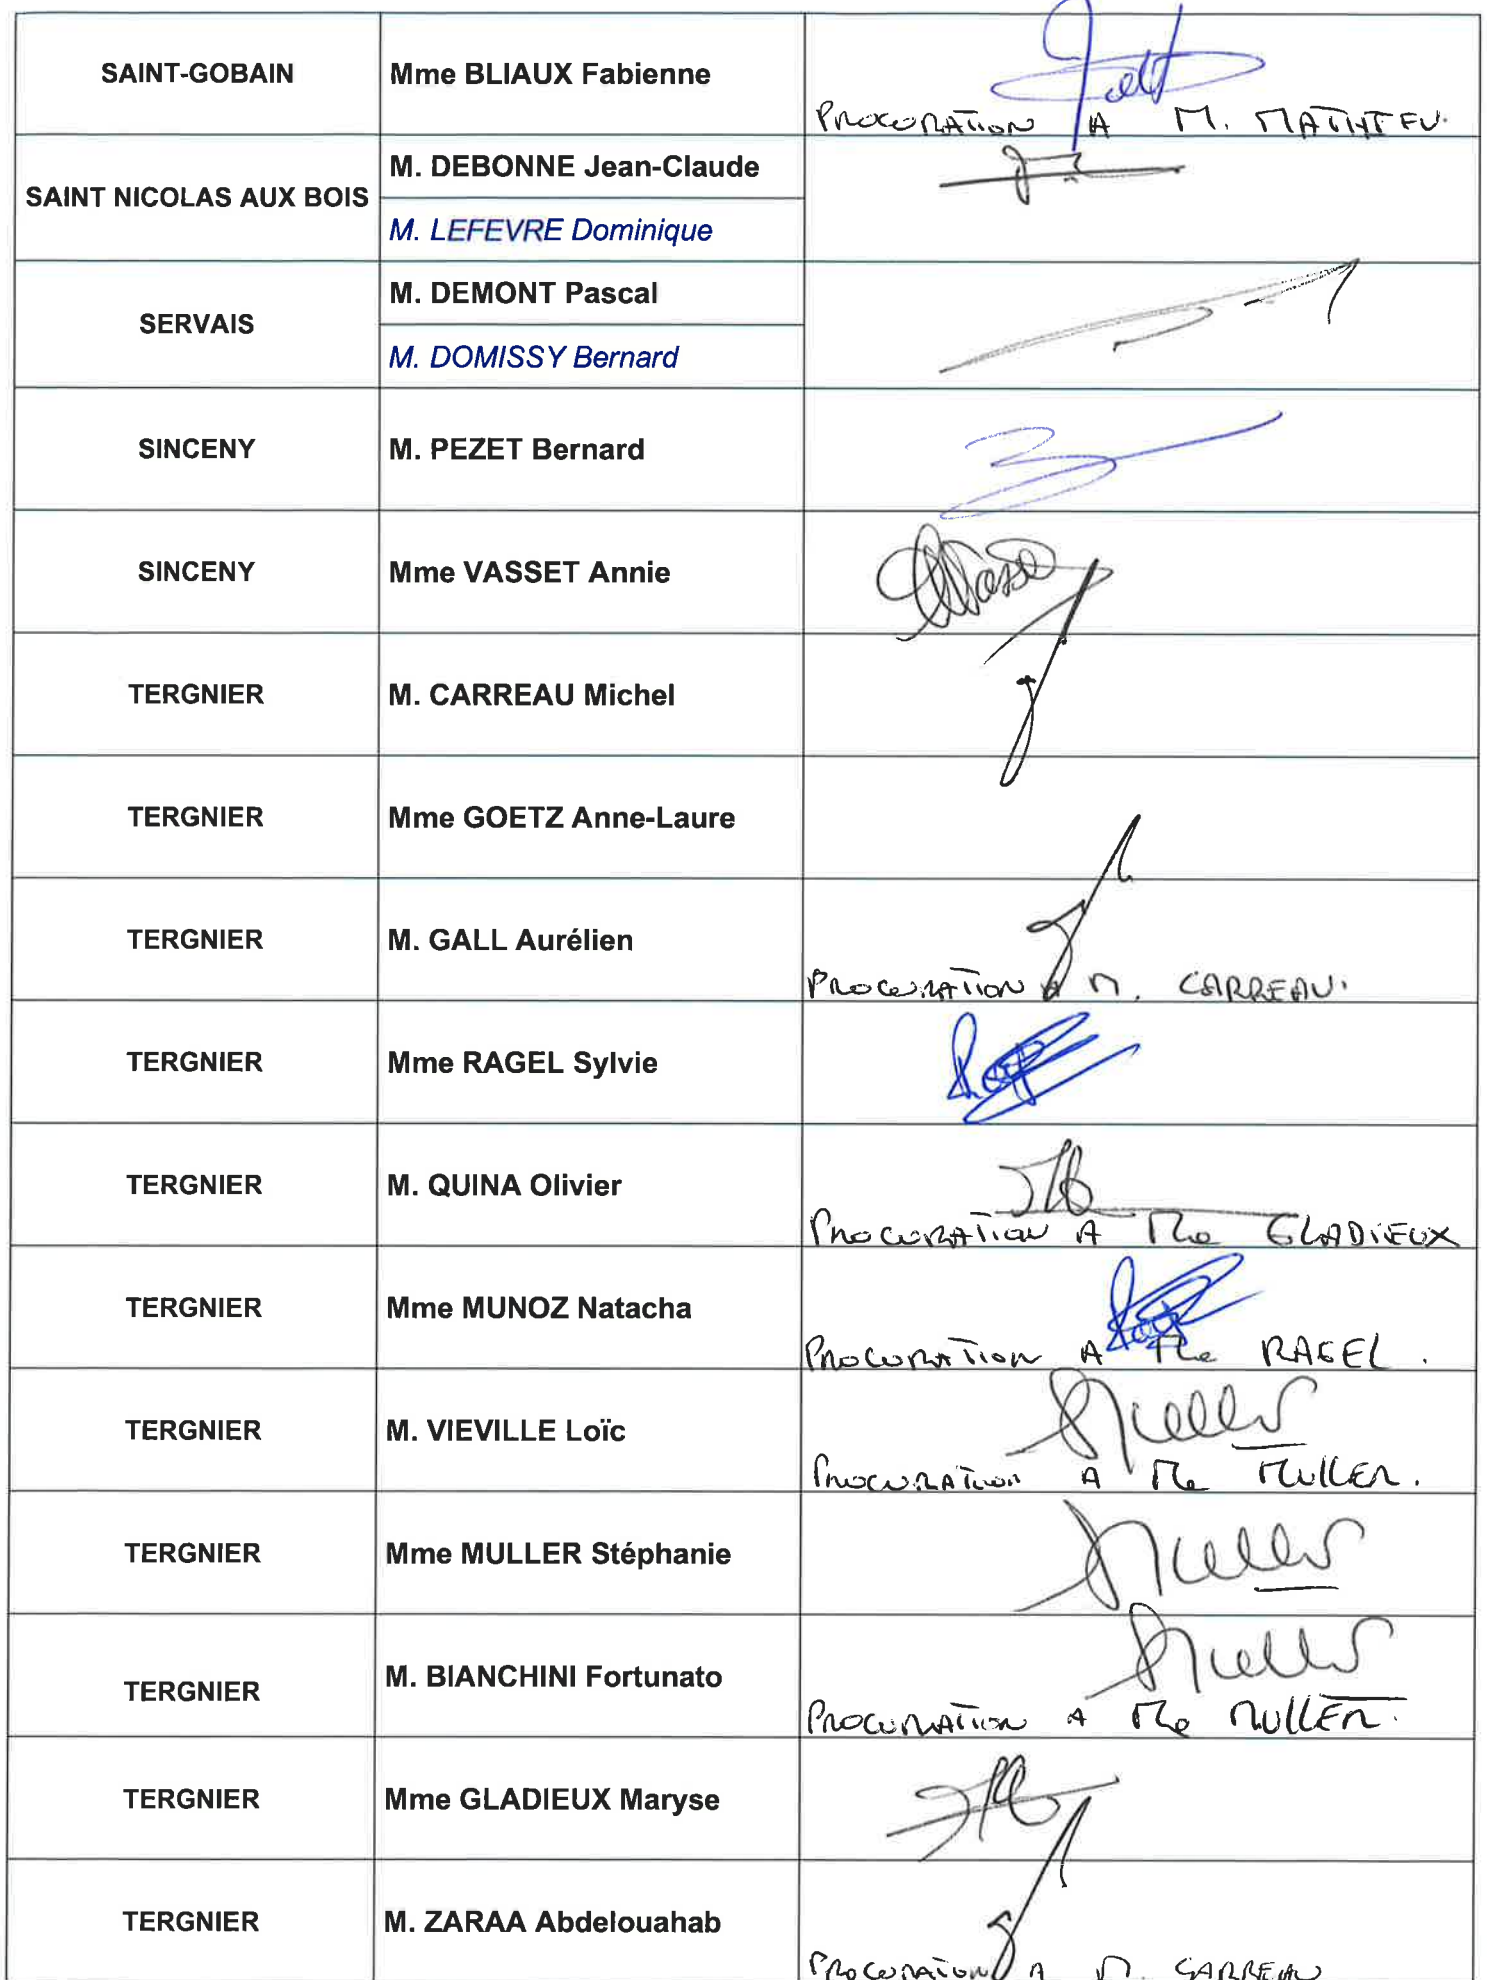 SAINT-GOBAIN
Mme BLIAUX Fabienne
PROCURATION A M. MATHIEU.
SAINT NICOLAS AUX BOIS
M. DEBONNE Jean-Claude
M. LEFEVRE Dominique
SERVAIS
M. DEMONT Pascal
M. DOMISSY Bernard
SINCENY
M. PEZET Bernard
SINCENY
Mme VASSET Annie
TERGNIER
M. CARREAU Michel
TERGNIER
Mme GOETZ Anne-Laure
TERGNIER
M. GALL Aurélien
PROCURATION A M. CARREAU.
TERGNIER
Mme RAGEL Sylvie
TERGNIER
M. QUINA Olivier
PROCURATION A Mme GLADIEUX
TERGNIER
Mme MUNOZ Natacha
PROCURATION A Mme RAGEL.
TERGNIER
M. VIEVILLE Loïc
Muller
PROCURATION A Mme MULLER.
TERGNIER
Mme MULLER Stéphanie
Muller
TERGNIER
M. BIANCHINI Fortunato
Muller
PROCURATION A Mme MULLER.
TERGNIER
Mme GLADIEUX Maryse
TERGNIER
M. ZARAA Abdelouahab
PROCURATION A M. CARREAU